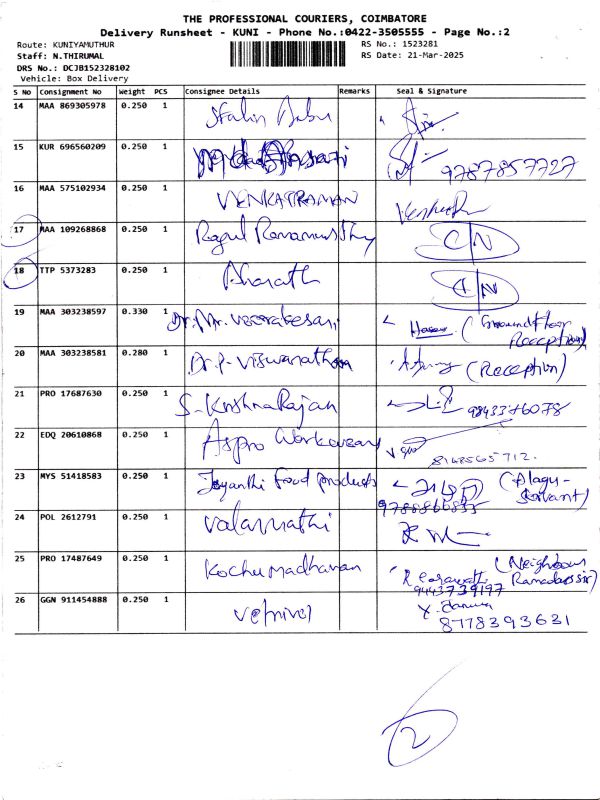 THE PROFESSIONAL COURIERS, COIMBATORE
Delivery Runsheet - KUNI - Phone No.:0422-3505555 - Page No.:2
Route: KUNIYAMUTHUR
RS No.: 1523281
Staff: N.THIRUMAL
RS Date: 21-Mar-2025
DRS No.: DCJB152328102
Vehicle: Box Delivery
S No Consignment No Weight PCS Consignee Details Remarks Seal & Signature
14 MAA 869305978 0.250 1 Stalin Babu
15 KUR 696560209 0.250 1 9787857727
16 MAA 575102934 0.250 1 VENKATRAMAN
17 MAA 109268868 0.250 1 Ragul Ramamurthy C/N
18 TTP 5373283 0.250 1 Bharath C/N
19 MAA 303238597 0.330 1 Dr.Mr. Veerakesari (Groundfloor
Reception)
20 MAA 303238581 0.280 1 Dr.P. Viswanathan (Reception)
21 PRO 17687630 0.250 1 S. Krishna Rajan 9843376078
22 EDQ 20610868 0.250 1 Aspro Workwear 8148565712.
23 MYS 51418583 0.250 1 Jayanthi Food products (Alagu-
Servant)
9788866835
24 POL 2612791 0.250 1 Valarmathi
25 PRO 17487649 0.250 1 Kochu madhavan (Neighbour
9443739197
26 GGN 911454888 0.250 1 Vetrivel
8778393631
2